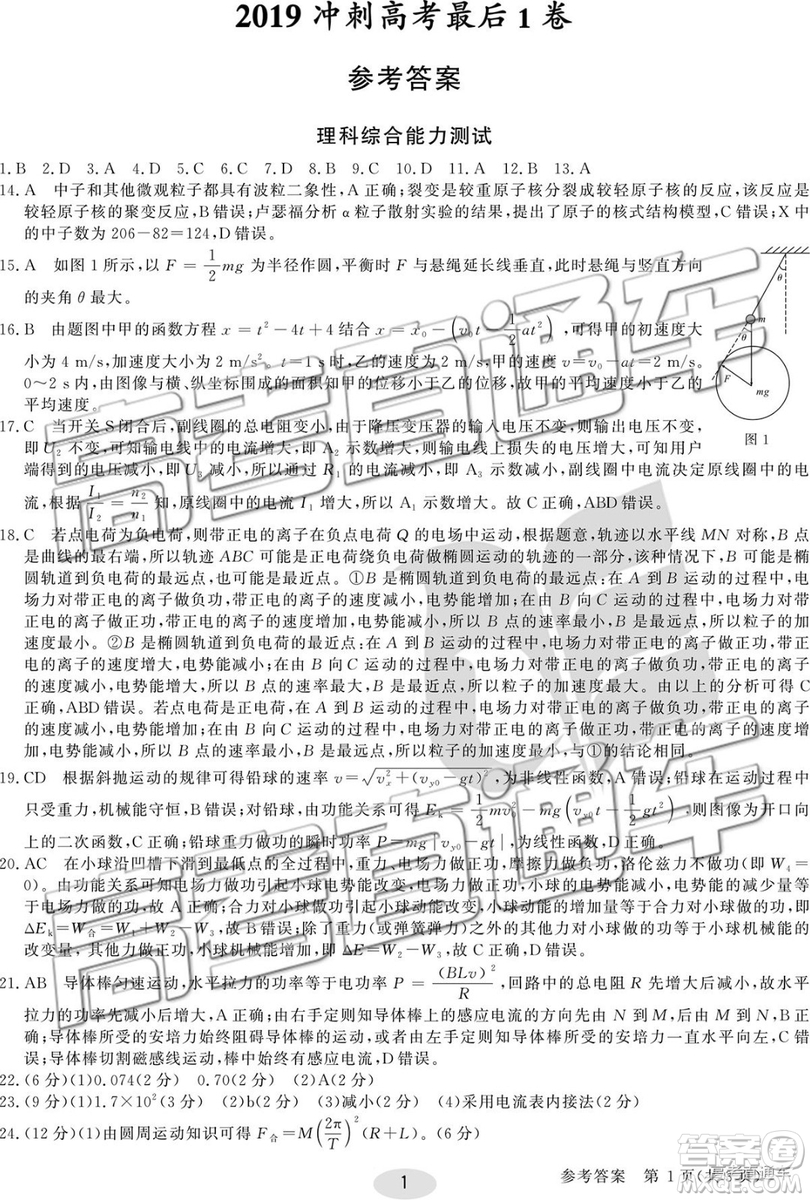 2019 冲刺高考最后 1 卷
参考答案
理科综合能力测试
1.B 2.D 3.A 4.D 5.C 6.C 7.D 8.B 9.C 10.D 11.A 12.B 13.A
14.A 中子和其他微观粒子都具有波粒二象性,A 正确;裂变是较重原子核分裂成较轻原子核的反应,该反应是
较轻原子核的聚变反应,B 错误;卢瑟福分析 α 粒子散射实验的结果,提出了原子的核式结构模型,C 错误;X 中
的中子数为 206-82=124,D 错误。
15.A 如图 1 所示,以 F=1/2 mg 为半径作圆,平衡时 F 与悬绳延长线垂直,此时悬绳与竖直方向
的夹角 θ 最大。
16.B 由题图中甲的函数方程 x=t²-4t+4 结合 x=x₀-(v₀t-1/2 at²),可得甲的初速度大
小为 4 m/s,加速度大小为 2 m/s²。t=1 s 时,乙的速度为 2 m/s,甲的速度 v=v₀-at=2 m/s。
0~2 s 内,由图像与横、纵坐标围成的面积知甲的位移小于乙的位移,故甲的平均速度小于乙的
平均速度。
θ
m
θ
F
mg
图 1
17.C 当开关 S 闭合后,副线圈的总电阻变小,由于降压变压器的输入电压不变,则输出电压不变,
即 U₂ 不变,可知输电线中的电流增大,即 A₂ 示数增大,则输电线上损失的电压增大,可知用户
端得到的电压减小,即 U₃ 减小,所以通过 R₁ 的电流减小,即 A₃ 示数减小,副线圈中电流决定原线圈中的电
流,根据 I₁/I₂=n₂/n₁ 知,原线圈中的电流 I₁ 增大,所以 A₁ 示数增大。故 C 正确,ABD 错误。
18.C 若点电荷为负电荷,则带正电的离子在负点电荷 Q 的电场中运动,根据题意,轨迹以水平线 MN 对称,B 点
是曲线的最右端,所以轨迹 ABC 可能是正电荷绕负电荷做椭圆运动的轨迹的一部分,该种情况下,B 可能是椭
圆轨道到负电荷的最远点,也可能是最近点。①B 是椭圆轨道到负电荷的最远点:在 A 到 B 运动的过程中,电
场力对带正电的离子做负功,带正电的离子的速度减小,电势能增加;在由 B 向 C 运动的过程中,电场力对带正
电的离子做正功,带正电的离子的速度增加,电势能减小,所以 B 点的速率最小,B 是最远点,所以粒子的加速度
最小。②B 是椭圆轨道到负电荷的最近点:在 A 到 B 运动的过程中,电场力对带正电的离子做正功,带正
电的离子的速度增大,电势能减小;在由 B 向 C 运动的过程中,电场力对带正电的离子做负功,带正电的离子的
速度减小,电势能增大,所以 B 点的速率最大,B 是最近点,所以粒子的加速度最大。由以上的分析可得 C 正
确,ABD 错误。若点电荷是正电荷,则在由 A 到 B 的过程中,电场力对带正电的离子做负功,带正电的离子
的速度减小,电势能增加;在由 B 向 C 运动的过程中,电场力对带正电的离子做正功,带正电的离子的速度增
加,电势能减小,所以 B 点的速率最小,B 是最近点,所以粒子的加速度最大,与①的结论相同。
19.CD 根据斜抛运动的规律可得铅球的速率 v=√(vₓ²+(v_y0-gt)²),为非线性函数,A 错误;铅球在运动过程中
只受重力,机械能守恒,B 错误;对铅球,由动能定理可得 Eₖ=1/2 mv₀²-mg(v_y0 t-1/2 gt²),则图像为开口向
上的二次函数,C 正确;铅球重力做功的瞬时功率 P=mg|v_y0-gt|,为线性函数,D 正确。
20.AC 在小球沿凹槽下滑到最低点的全过程中,重力、电场力做正功,摩擦力做负功,洛伦兹力不做功(即 W₄=
0)。由功能关系可知电场力做功引起小球电势能改变,电场力做正功,小球的电势能减小,电势能的减少量等
于电场力做功,故 A 正确;合力对小球做功引起小球动能改变,小球动能的增加量等于合力对小球做的功,即
ΔEₖ=W合=W₁+W₂-W₃,故 B 错误;除重力(或弹簧弹力)之外的其他力对小球做功引起小球机械能改
变,其他力做正功,小球机械能增加,即 ΔE=W₂-W₃,故 C 正确,D 错误。
21.AB 导体棒匀速运动,水平拉力的功率等于电功率 P=(BLv)²/R,回路中的总电阻 R 先增大后减小,故水平
拉力的功率先减小后增大,A 正确;由右手定则知导体棒上的感应电流的方向先由 N 到 M,后由 M 到 N,由
左手定则知导体棒所受的安培力始终阻碍导体棒的运动,或者由左手定则知导体棒所受的安培力始终向左,C 错
误;导体棒切割磁感线运动,棒中始终有感应电流,D 错误。
22.(6 分)(1)0.074(2 分) 0.70(2 分) (2)A(2 分)
23.(9 分)(1)1.7×10²(3 分) (2)b(2 分) (3)减小(2 分) (4)采用电流表内接法(2 分)
24.(12 分)(1)由圆周运动知识可得 F合=M(2π/T)²(R+L)。(6 分)
1
参考答案 第 1 页(共
高考直通车